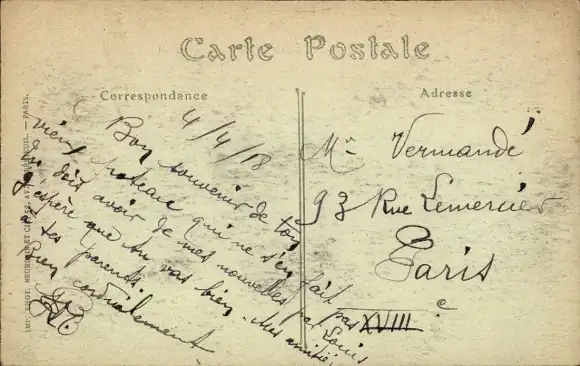 Carte Postale
Correspondance
Adresse
4/4/18
Bon souvenir de ton
vieux poteau qui ne s'en fait pas
Tu dois avoir de mes nouvelles par Louis
J'espère que tu vas bien. Mes amitiés
à tes parents
Bien cordialement
Mr Vermandé
93 Rue Lemercier
Paris
XVIII e